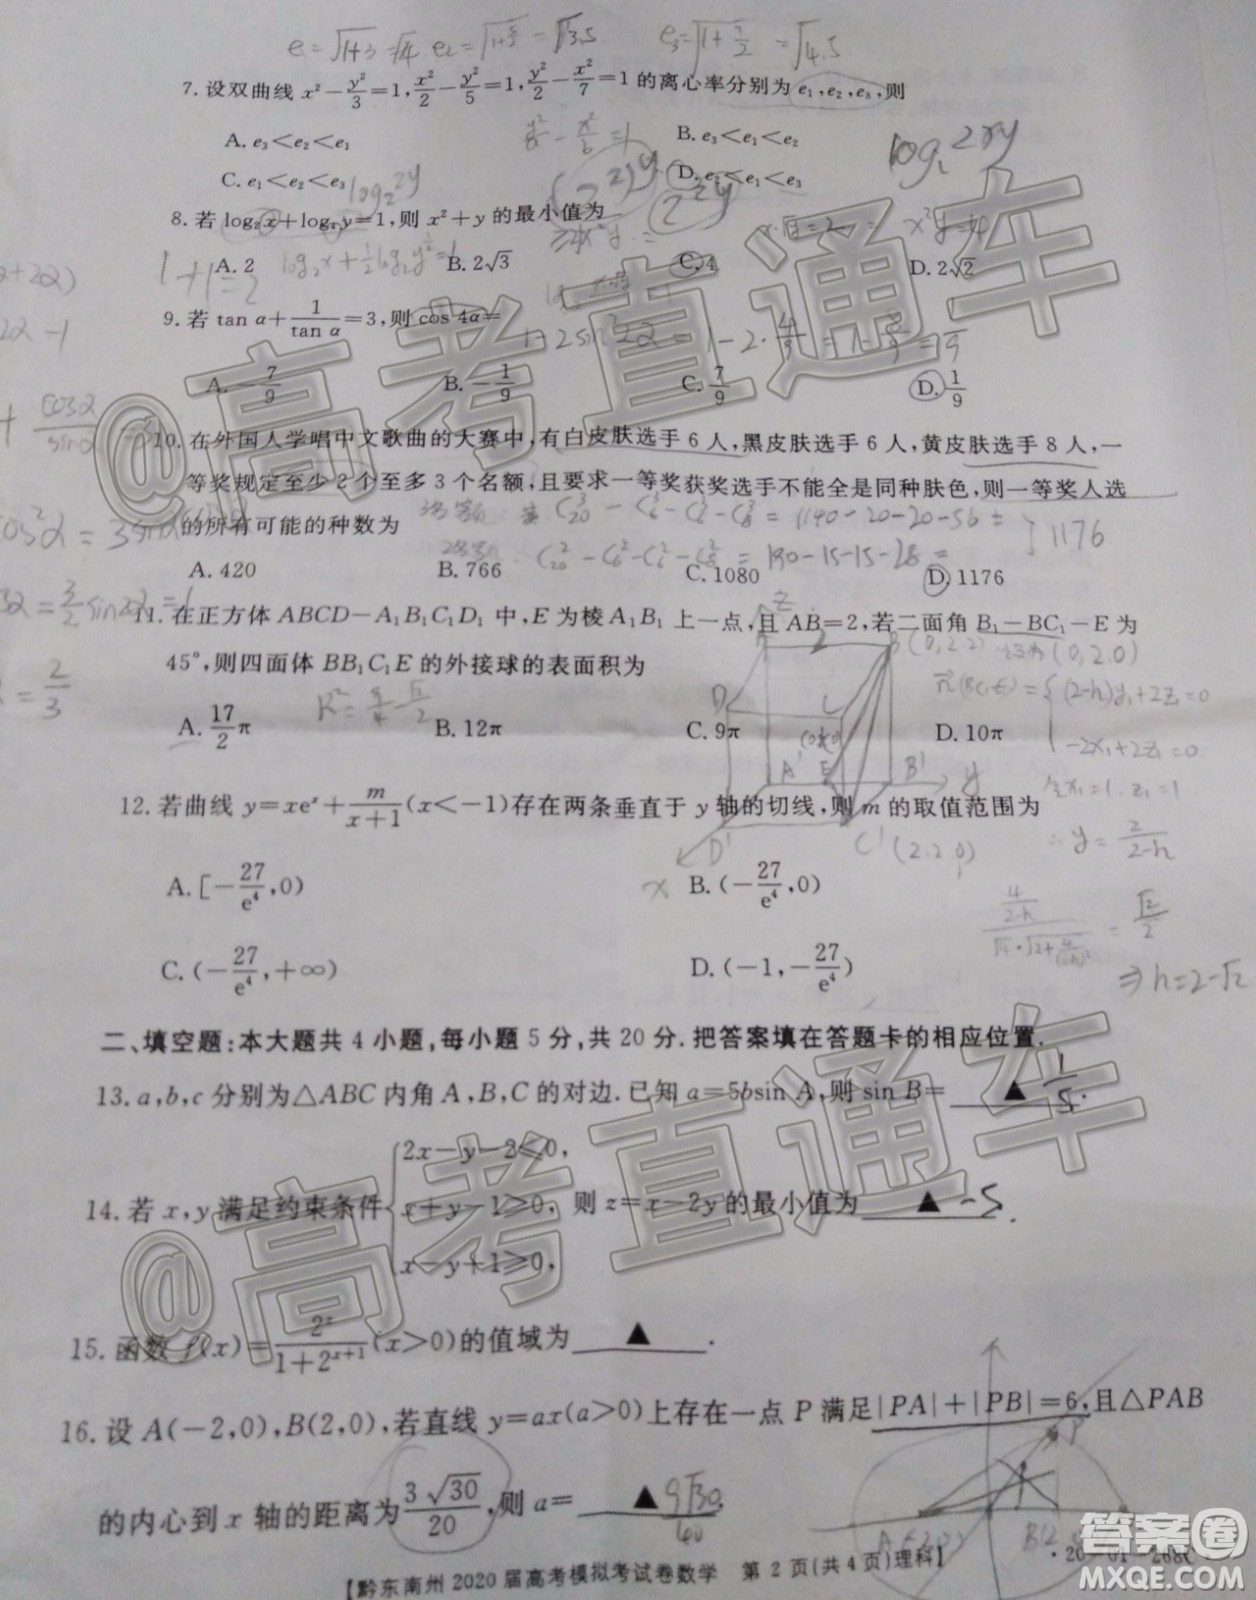 e₁=√1+3=√4 e₂=√1+5/2=√3.5 e₃=√1+7/2=√4.5
7. 设双曲线 x²-y²/3=1, x²/2-y²/5=1, y²/2-x²/7=1 的离心率分别为 e₁,e₂,e₃,则
A. e₃<e₂<e₁ B. e₃<e₁<e₂
C. e₁<e₂<e₃ D. e₂<e₁<e₃
8. 若 log₂x+log₄y=1,则 x²+y 的最小值为
A. 2 B. 2√3 C. 4 D. 2√2
9. 若 tan α+1/tan α=3,则 cos 4α=
1-2sin²2α=1-2·4/9=1-8/9=1/9
A. -7/9 B. -1/9 C. 7/9 D. 1/9
10. 在外国人学唱中文歌曲的大赛中,有白皮肤选手 6 人,黑皮肤选手 6 人,黄皮肤选手 8 人,一
等奖规定至少 2 个至多 3 个名额,且要求一等奖获奖选手不能全是同种肤色,则一等奖人选
的所有可能的种数为
C³₂₀-C³₆-C³₆-C³₈=1140-20-20-56=
C²₂₀-C²₆-C²₆-C²₈=190-15-15-28=
1176
A. 420 B. 766 C. 1080 D. 1176
11. 在正方体 ABCD-A₁B₁C₁D₁ 中,E 为棱 A₁B₁ 上一点,且 AB=2,若二面角 B₁-BC₁-E 为
45°,则四面体 BB₁C₁E 的外接球的表面积为
A. 17/2 π B. 12π C. 9π D. 10π
12. 若曲线 y=xeˣ+m/(x+1)(x<-1)存在两条垂直于 y 轴的切线,则 m 的取值范围为
A. [-27/e⁴,0) B. (-27/e⁴,0)
C. (-27/e⁴,+∞) D. (-1,-27/e⁴)
⇒h=2-√2
二、填空题:本大题共 4 小题,每小题 5 分,共 20 分.把答案填在答题卡的相应位置.
13. a,b,c 分别为△ABC 内角 A,B,C 的对边.已知 a=5bsin A,则 sin B= ▲ 1/5
14. 若 x,y 满足约束条件 {2x-y-2≤0, x+y-1≥0, x-y+1≥0, 则 z=x-2y 的最小值为 ▲ -5.
15. 函数 f(x)=2ˣ/(1+2ˣ⁺¹)(x>0)的值域为 ▲ .
16. 设 A(-2,0),B(2,0),若直线 y=ax(a>0)上存在一点 P 满足|PA|+|PB|=6,且△PAB
的内心到 x 轴的距离为 3√30/20,则 a= ▲ 9√30/40
【黔东南州 2020 届高考模拟考试卷数学 第 2 页(共 4 页)理科】
·20-01-268C·
@高考直通车
@高考直通车
答案圈
MXQE.COM